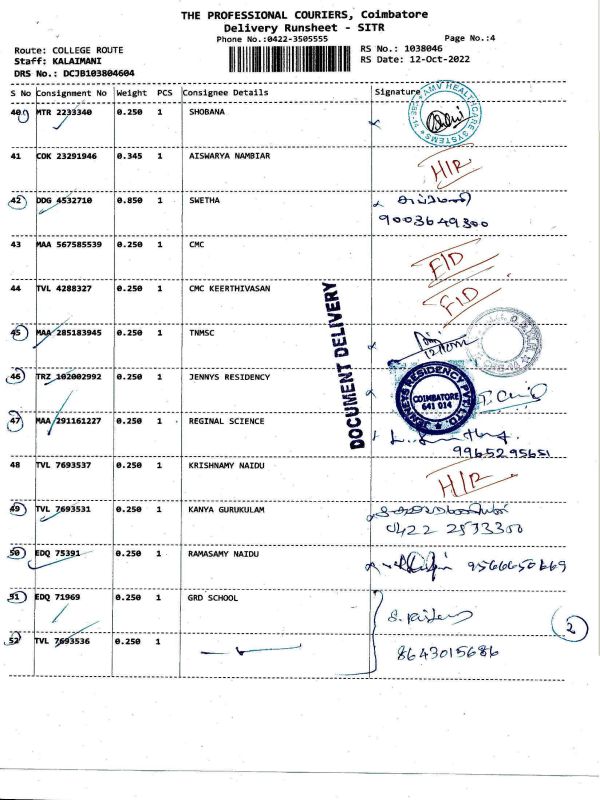 THE PROFESSIONAL COURIERS, Coimbatore
Delivery Runsheet - SITR
Phone No.:0422-3505555 Page No.:4
Route: COLLEGE ROUTE RS No.: 1038046
Staff: KALAIMANI RS Date: 12-Oct-2022
DRS No.: DCJB103804604
S No Consignment No Weight PCS Consignee Details Signature
40 MTR 2233340 0.250 1 SHOBANA
AMV HEALTHCARE SYSTEMS
41 COK 23291946 0.345 1 AISWARYA NAMBIAR H/R
42 DDG 4532710 0.850 1 SWETHA
9003649300
43 MAA 567585539 0.250 1 CMC F/D
44 TVL 4288327 0.250 1 CMC KEERTHIVASAN F/D
DOCUMENT DELIVERY
45 MAA 285183945 0.250 1 TNMSC
46 TRZ 102002992 0.250 1 JENNYS RESIDENCY
JENNEYS RESIDENCY PVT. LTD.
COIMBATORE
641 014
47 MAA 291161227 0.250 1 REGINAL SCIENCE
9965295651
48 TVL 7693537 0.250 1 KRISHNAMY NAIDU H/R
49 TVL 7693531 0.250 1 KANYA GURUKULAM
0422 2573300
50 EDQ 75391 0.250 1 RAMASAMY NAIDU
51 EDQ 71969 0.250 1 GRD SCHOOL
2
52 TVL 7693536 0.250 1
8643015686